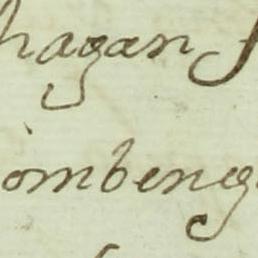 hagan
ombeng